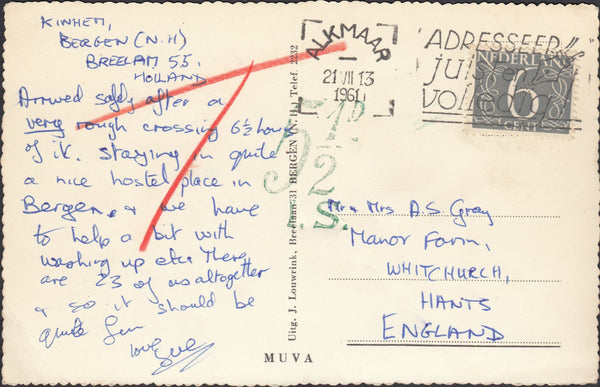 KINHEM,
BERGEN (N.H)
BREELAAN 55,
HOLLAND
Arrived safely after a
very rough crossing 6½ hours
of it. staying in quite
a nice hostel place in
Bergen, & we have
to help a bit with
washing up etc. There
are 23 of us altogether
& so it should be
quite fun
love
T
Uitg. J. Louwrink, Breelaan 31 BERGEN (N.H.) Telef. 2232
MUVA
ALKMAAR
21 VII 13
1961
ADRESSEER
juist en
volledig
NEDERLAND
6
CENT
5½D
.S.
Mr & Mrs A.S. Gray
Manor Farm,
WHITCHURCH,
HANTS
ENGLAND